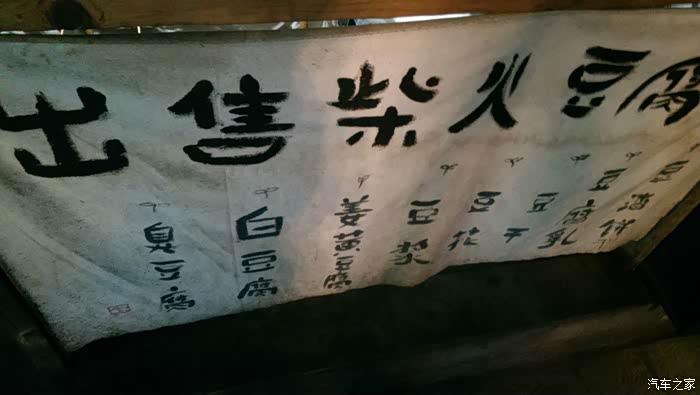 出售柴火豆腐
臭豆腐
白豆腐
姜
豆浆
豆花
豆干
豆腐乳
豆渣饼
汽车之家